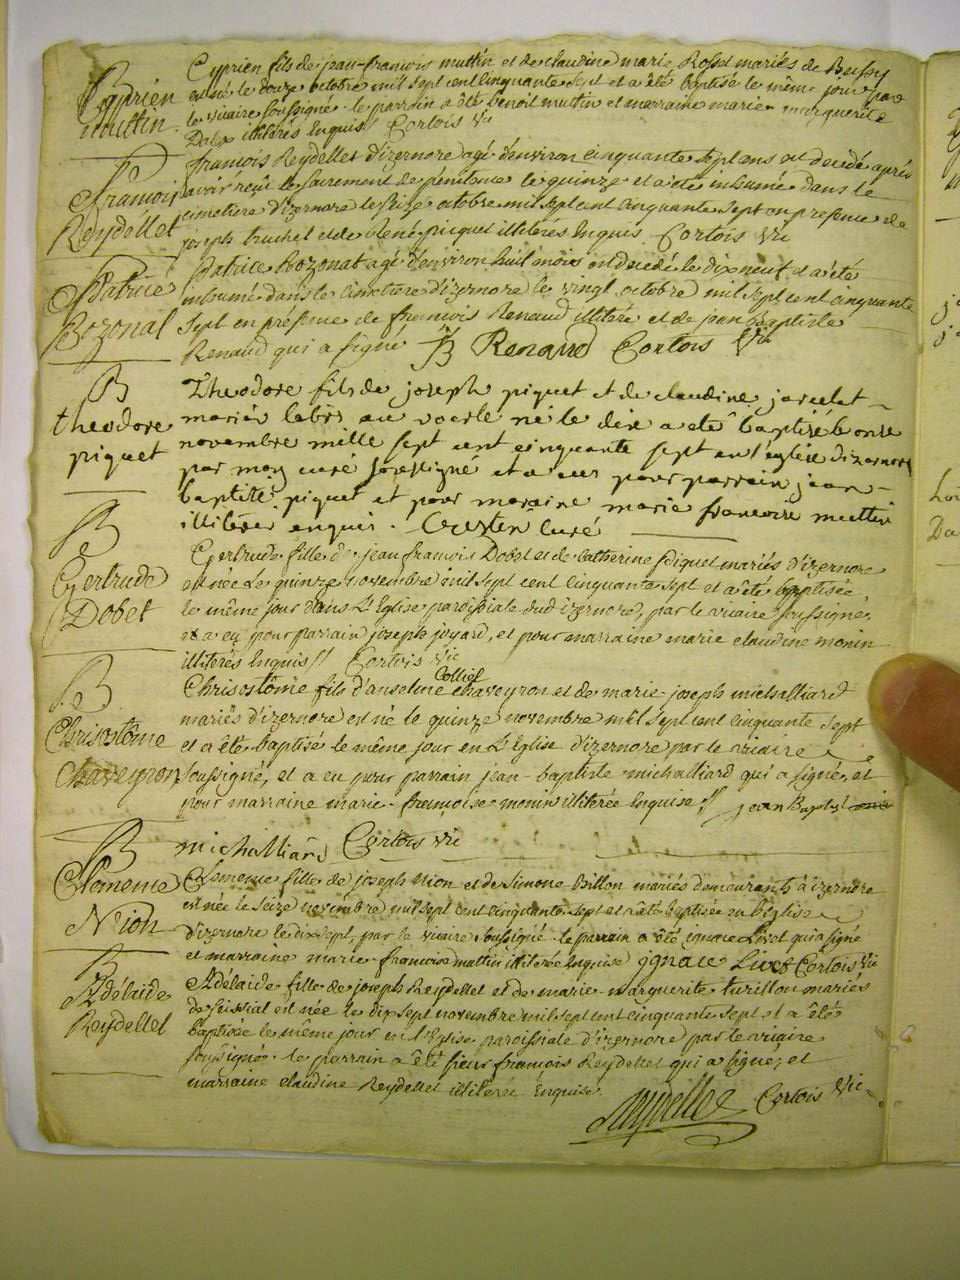 B
Cyprien
muttin
Cyprien fils de jean-françois muttin et de claudine marie Rosset mariés de Bussy
est né le douze octobre mil sept cent cinquante sept et a été baptisé le même jour par
le vicaire soussigné. le parrain a été benoit muttin et marraine marie marguerite
illiterés Enquis// Cortois Vic
françois
Reydellet
françois Reydellet d'izernore agé d'environ cinquante sept ans est decedé après
avoir reçu le sacrement de penitence le quinze et a été inhumé dans le
cimetiere d'izernore le seize octobre mil sept cent cinquante sept en presence de
joseph truchet et de René piquet illiterés Enquis Cortois Vic
Patrice
Bozonat
Patrice Bozonat agé d'environ huit mois est decedé le dix neuf et a été
inhumé dans le cimetiere d'izernore le vingt octobre mil sept cent cinquante
sept en présence de françois Renaud illiteré et de jean Baptiste
Renaud qui a signé JB Renaud Cortois Vic
B
theodore
piquet
Theodore fils de joseph piquet et de claudine
mariés né le dix a eté baptisé le onze
novembre mille sept cent cinquante sept en l'église dizernore
par moy curé soussigné et a eu pour parrain jean
baptiste piquet et pour maraine marie francoise muttin
illiterés enquis. curé
B
Gertrude
Dobet
Gertrude fille de jean françois Dobet et de Catherine piquet mariés d'izernore
est née le quinze novembre mil sept cent cinquante sept et a été baptisée
le même jour dans L'Eglise paroissiale dud izernore, par le vicaire soussigné
et a eu pour parrain joseph joyard, et pour marraine marie claudine monin
illiterés Enquis// Cortois Vic
B
Chrisostôme
Chaveyron
Collet
Chrisostôme fils d'anselme chaveyron et de marie joseph michalliard
mariés d'izernore est né le quinze novembre mil sept cent cinquante sept
et a été baptisé le même jour en L'Eglise d'izernore par le vicaire
soussigné, et a eu pour parrain jean-baptiste michalliard qui a signé, et
pour marraine marie françoise monin illiterée Enquise// jean Baptist
michalliard Cortois Vic
B
Clemence
Nion
Clemence fille de joseph Nion et de Simone Billon mariés demeurants à izernore
est née le seize novembre mil sept cent cinquante sept et a été baptisée en l'église
d'izernore le dix sept, par le vicaire soussigné. le parrain a été ignace Livet qui a signé
et marraine marie françoise muttin illiterée Enquise ygnace Livet Cortois Vic
B
Adélaïde
Reydellet
Adélaïde fille de joseph Reydellet et de marie marguerite turillon mariés
de est née le dix sept novembre mil sept cent cinquante sept et a été
baptisée le même jour en l'Eglise paroissiale d'izernore par le vicaire
soussigné. le parrain a été sieur françois Reydellet qui a signé; et
marraine claudine Reydellet illiterée Enquise.
Reydellet Cortois Vic